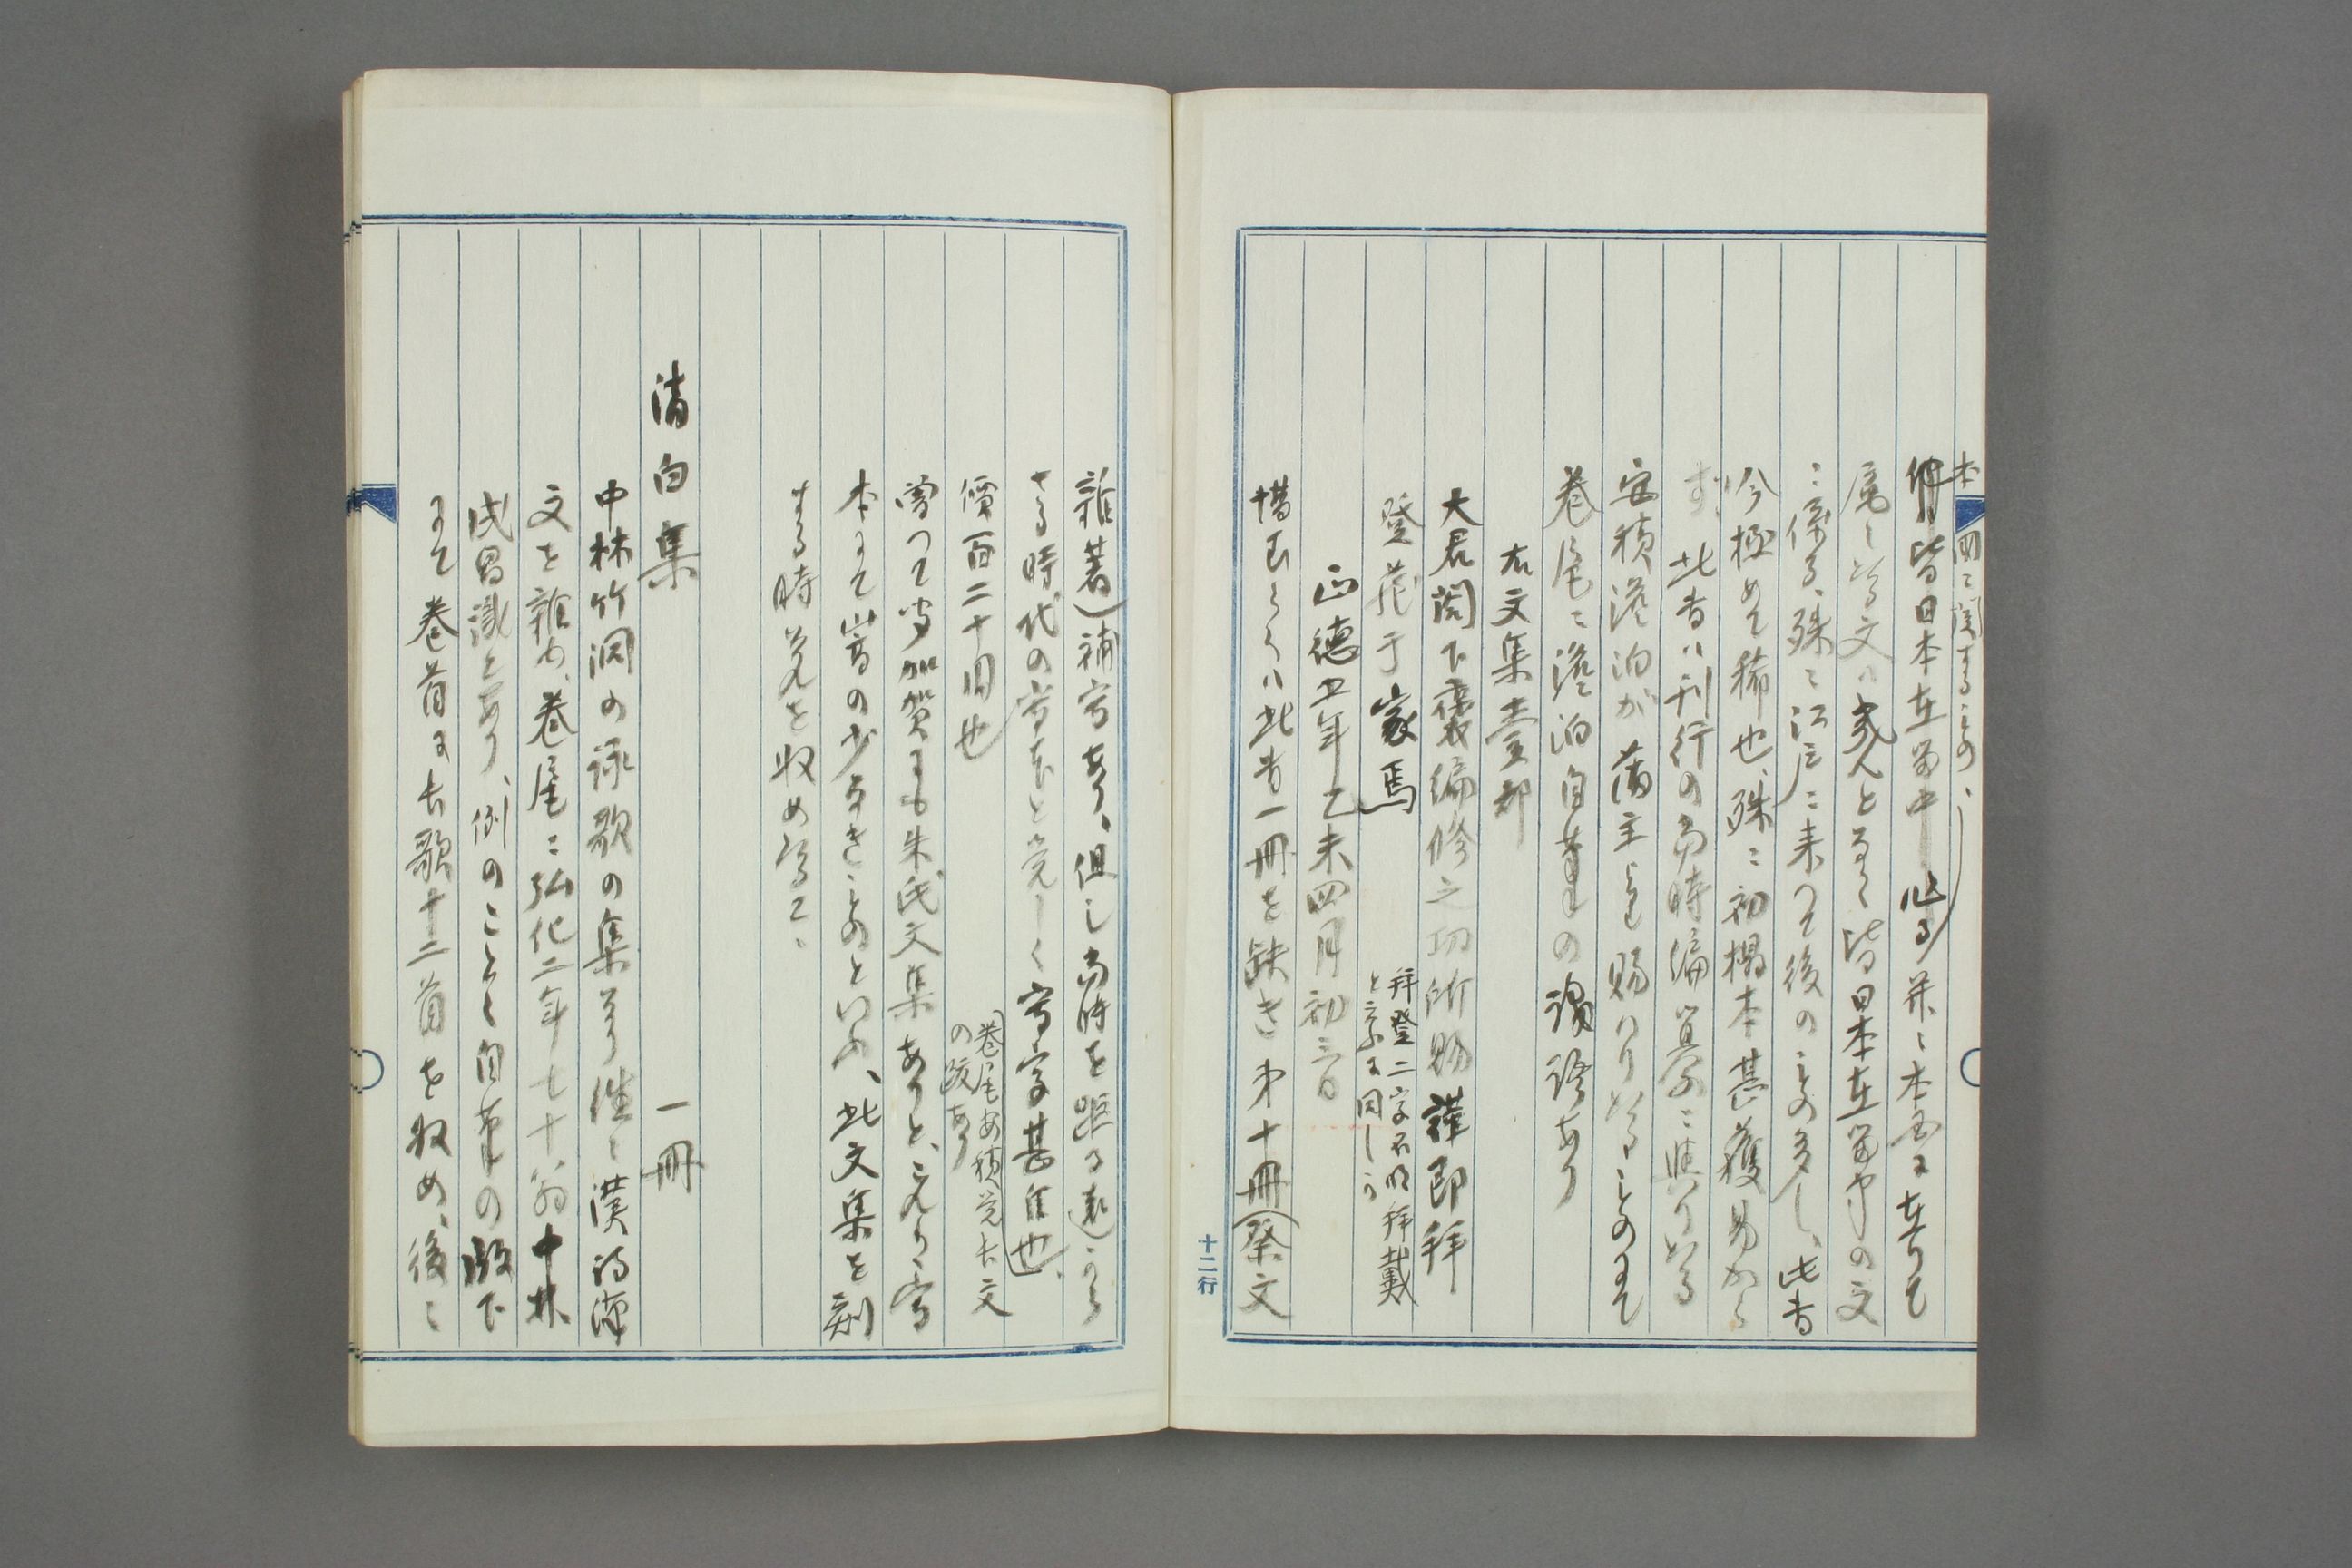 本国ニ関するもの、
皆日本在留中
尾しよる文ハ殆んと多く皆日本在留中の文
ニ係る、殊ニ江戸ニ来つて後のもの多し、此書
今極めて稀也、殊ニ初榻本甚獲易から
ず、此書ハ刊行の当時編纂ニ與りたる
安積澹泊が藩主より賜ハりたるものにて
巻尾ニ澹泊自筆の識語あり
右文集壹部
大君閣下褒編修之功所賜謹即拝
登蔵于家焉
拝登二字不明拝戴
と云ふに同しう
正徳五年乙未四月初三日
惜むらくハ此書一冊を缺き第十冊(祭文
雑著)補写あり、但し当時を距る遠から
さる時代の写本と覚しく写字甚佳也、
價百二十円也
巻尾安積覚大文
の跋あり
曽つて聞加賀にも朱氏文集ありと、元より写
本にて巻の少なきものといふ、此文集を刻
する時其元を収めたるニ
清白集
一冊
中林竹洞の詠歌の集なり往々漢詩漢
文を雑め、巻尾ニ弘化二年七十翁中林
成昌識とあり、例のことく自筆の版下
にて巻首に古歌十二首を収め、後ニ
十二行